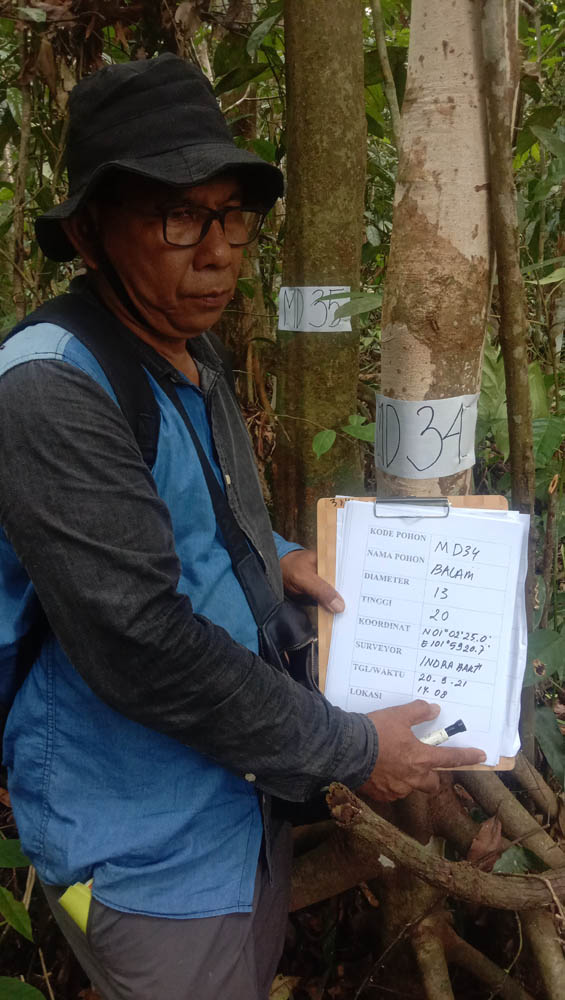 MD 35
MD 34
KODE POHON MD34
NAMA POHON BALAM
DIAMETER 13
TINGGI 20
KOORDINAT N01°02'25.0'
E101°5920.7'
SURVEYOR INDRA BAKTI
TGL/WAKTU 20-9-21
LOKASI 14.08